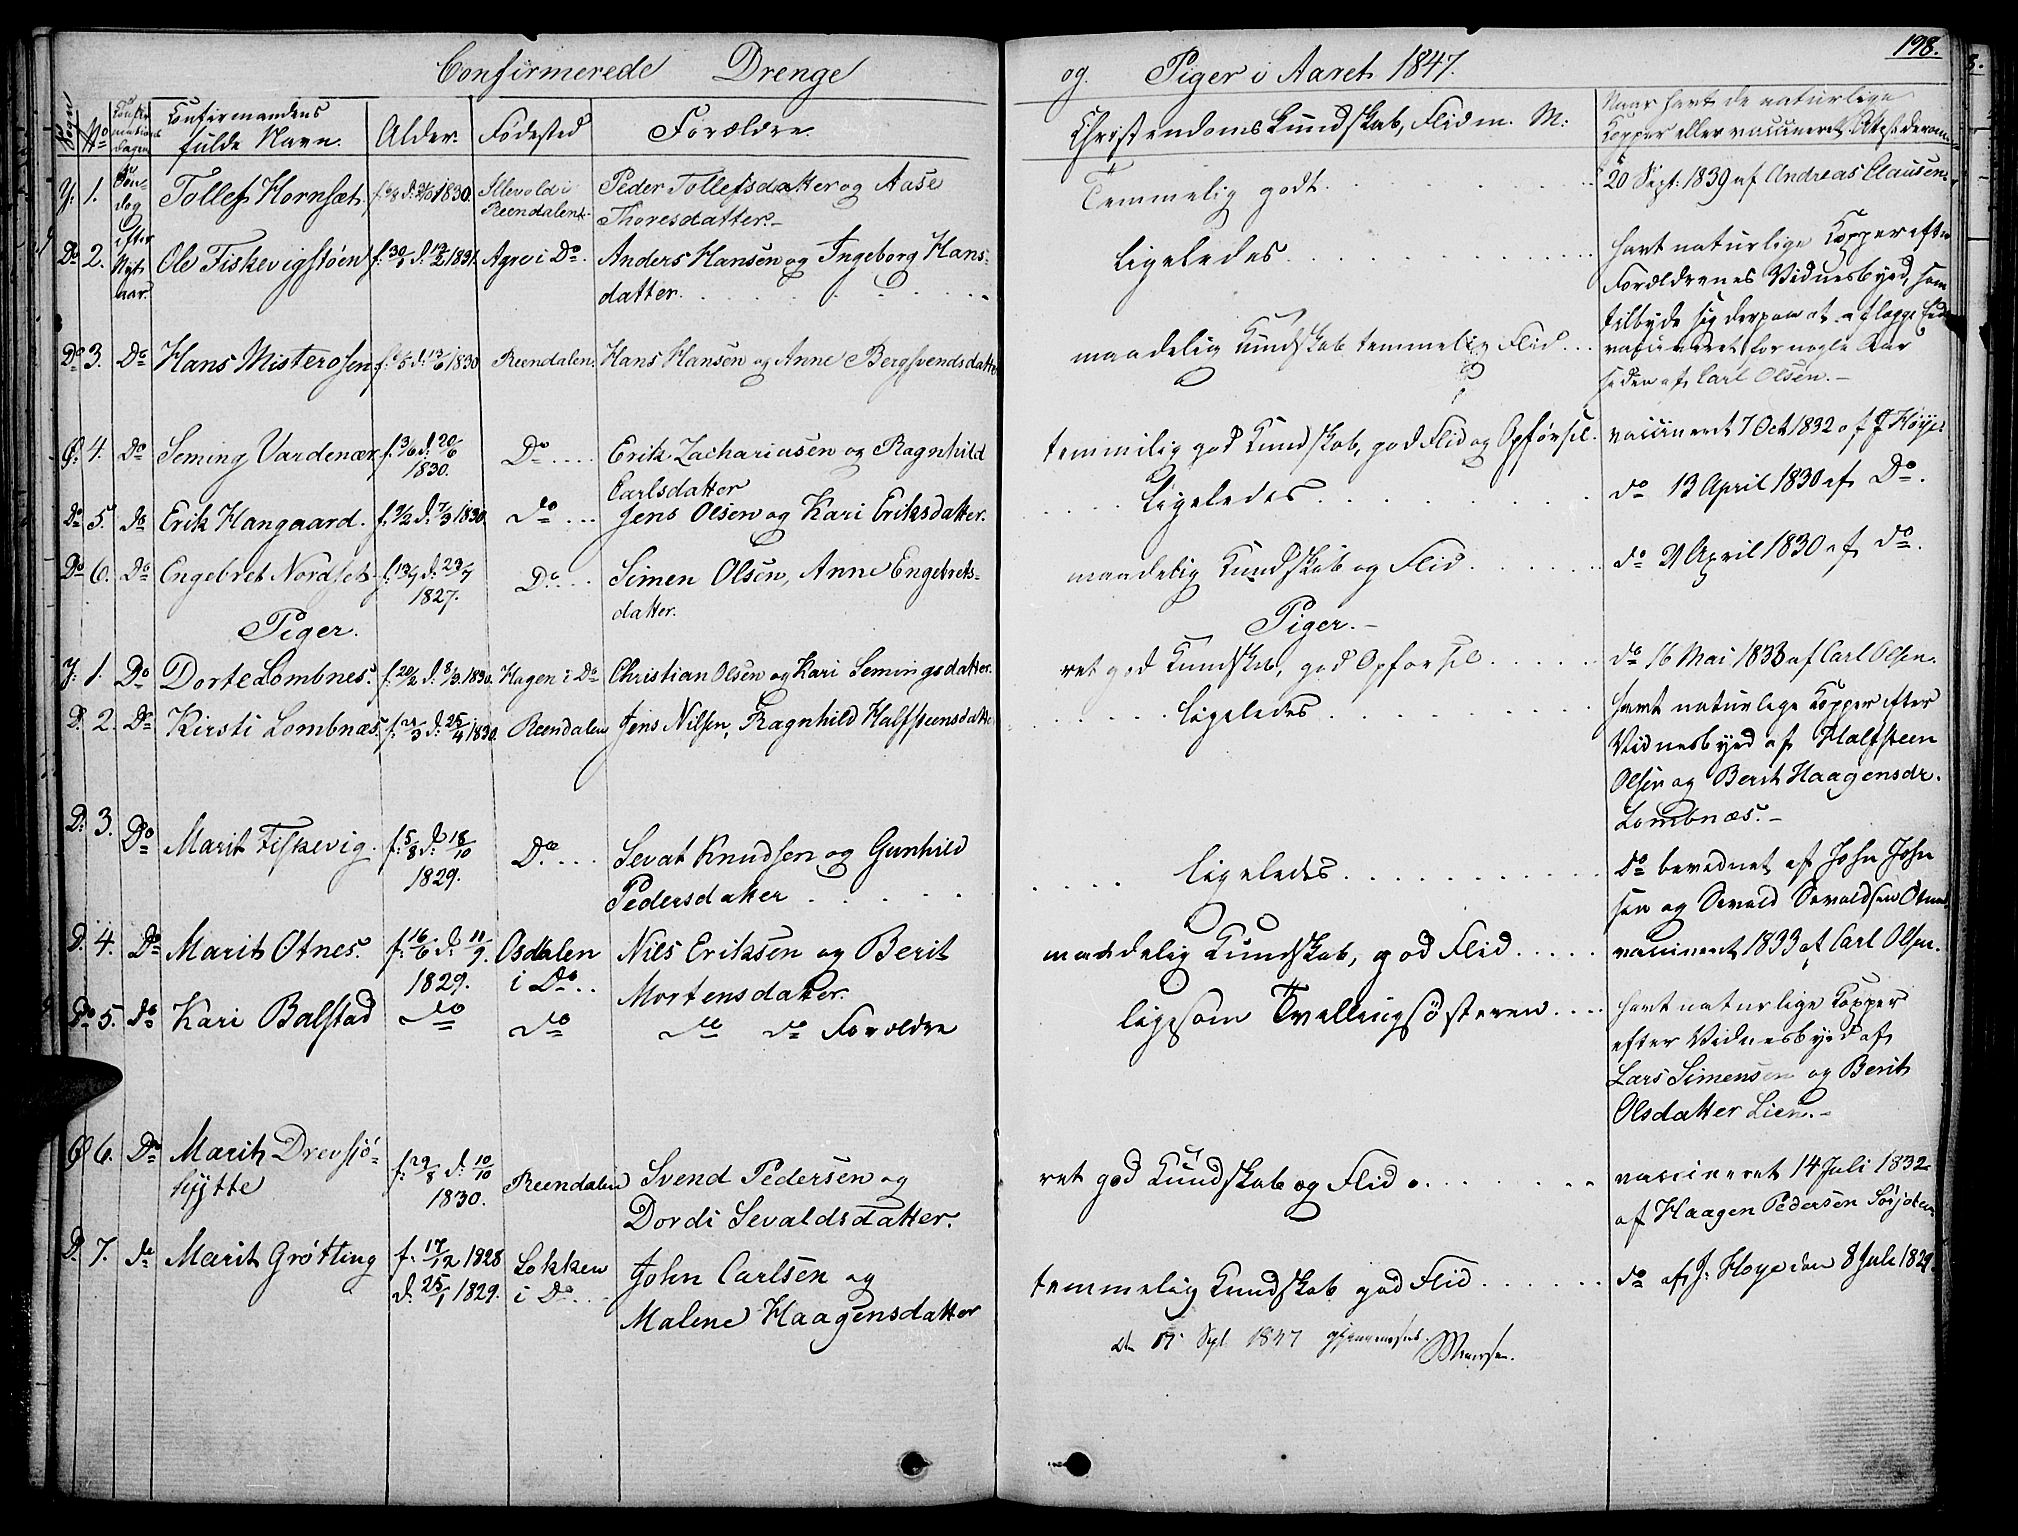 Confirmerede Drenge og Piger i Aaret 1847. 198.
Sogn No Confirmations Dagen Confirmandens fulde Navn. Alder. Fødested Forældre. Christendoms Kundskab, Flid m. M: Naar havt de naturlige Kopper eller vaccineret. Attest derom
Y. 1. Søndag efter Nytaar. Tollef Hornset 1830. Illevold i Reendalen. Peder Tollefsdatter og Aase Thoresdatter. Temmelig godt 20 Sept: 1839 af Andreas Clausen.
Do 2. Ole Fiskevigstøen f. 30/1 d. 13/2 1831. Agre i Do. Anders Hansen og Ingeborg Hansdatter. ligeledes havt naturlige Kopper efter Forældrenes Vidnesbyrd, som tilbyde sig derpaa at aflægge Eed
Do 3. Do Hans Misterosen 1830 Reendalen. Hans Hansen og Anne Bergsvendsdatter maadelig Kundskab temmelig Flid vaccineret for nogle Aar siden af Carl Olsen.
Ø. 4. Do Seming Vardenær f. 3/6 d. 20/6 1830. Do Erik Zachariasen og Ragnhild Carlsdatter temmelig god Kundskab, god Flid og Opførsel. vaccineret 7 Oct 1832 af J Høye
Do 5. do Erik Hangaard. f. 9/2 d. 7/3 1830. do Jens Olsen og Kari Eriksdatter. ligeledes do 13 April 1830 af Do.
Do 6. Do Engebret Nordset f. 13/7 d. 23/7 1827. Do Simen Olsen, Anne Engebretsdatter. maadelig Kundskab og Flid do 21 April 1830 af do.
Piger. Piger.
Y. 1. Do Dorte Lombnes. f. 20/2 d. 8/3 1830. Hagen i Do Christian Olsen og Kari Semingsdatter. ret god Kundskab, god Opførsel do 16 Mai 1833 af Carl Olsen.
D. 2. Do Kirsti Lombnæs. d. 25/4 1830. Reendalen Jens Nilsen, Ragnhild Halfsteensdatter ligeledes havt naturlige Kopper efter Vidnesbyrd af Halfsteen Olsen og Berit Haagensdr. Lombnæs.
D. 3. Do Marit Fiskevig. f. 5/8 d. 18/10 1829. Do Sevat Knudsen og Gunhild Pedersdatter ligeledes do bevidnet af John Johnsen og Sevald Sevaldsen Otnes
D. 4. Do Marit Otnes. f. 16/6 d. 11/9 1829. Osdalen i Do. Nils Eriksen og Berit Mortensdatter. maadelig Kundskab, god Flid vaccineret 1833 af Carl Olsen.
Do 5. do Kari Balstad do do do do Forældre ligesom Tvillingsøsteren havt naturlige Kopper efter Vidnesbyrd af Lars Simensen og Berit Olsdatter Lien.
Ø 6. Do Marit Drevsjøhytte f. 29/8 d. 10/10 1830. Reendalen Svend Pedersen og Dordi Sevaldsdatter. ret god Kundskab og Flid vaccineret 14 Juli 1832 af Haagen Pedersen
D. 7. do Marit Grøtting f. 17/12 1828 d. 25/1 1829. Løkken i Do John Carlsen og Malene Haagensdatter temmelig Kundskab god Flid do af J. Høye den 8 Juli 1829.
d. 17 Sept 1847 gjennemseet